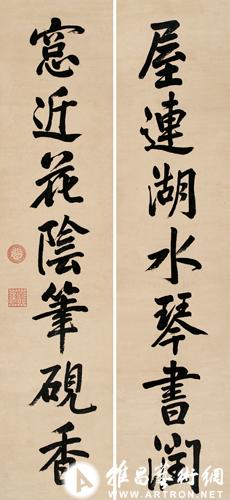 屋連湖水琴書潤
窓近花陰筆硯香
雅昌藝術網
WWW.ARTRON.NET